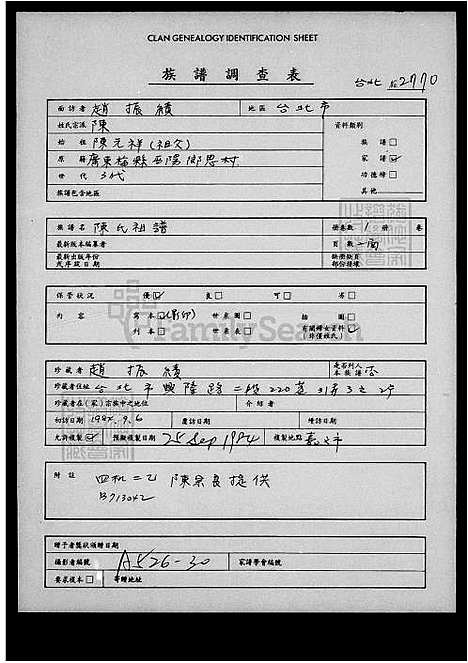 CLAN GENEALOGY IDENTIFICATION SHEET
族譜調查表
台北 2770
面訪者 趙振績 地區 台北市
姓氏宗派 陳 資料類別
始祖 陳元祥(祖父) 族譜□
原籍 屏東 縣 鄉 村 家譜☑
世代 3代 功德榜□
族譜包含地區 其他
族譜名 陳氏祖譜 冊卷數 1 冊 卷
最新版本編纂者 頁數 一面
最新出版年份 缺冊缺頁
或序跋日期 部份殘壞
保管狀況 優☑ 良□ 可□ 劣□
內容 寫本☑(影印) 世系圖□ 插圖□
刊本□ 世系表□ 有關婦女資料☑
(非僅姓氏)
FamilySearch
珍藏者 趙振績 是否列入本族譜 否
珍藏者住址 台北市興隆路二段220巷31弄3之2號
珍藏者在(家)宗族中之地位 介紹者
初訪日期 1994.9.6 覆訪日期 增訪日期
允許複製☑ 預擬複製日期 25 Sep 1994 複製地點
附註 四机二乙 陳 良提供
B713042
贈予者獎狀頒贈日期
攝影者編號 A526-30 家譜學會編號
要求複本□ 寄贈地址